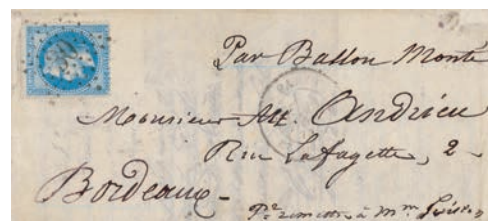 Par Ballon Monté
Monsieur Alf. Andrieu
Rue Lafayette, 2 -
Bordeaux -
Pr remettre à Mme